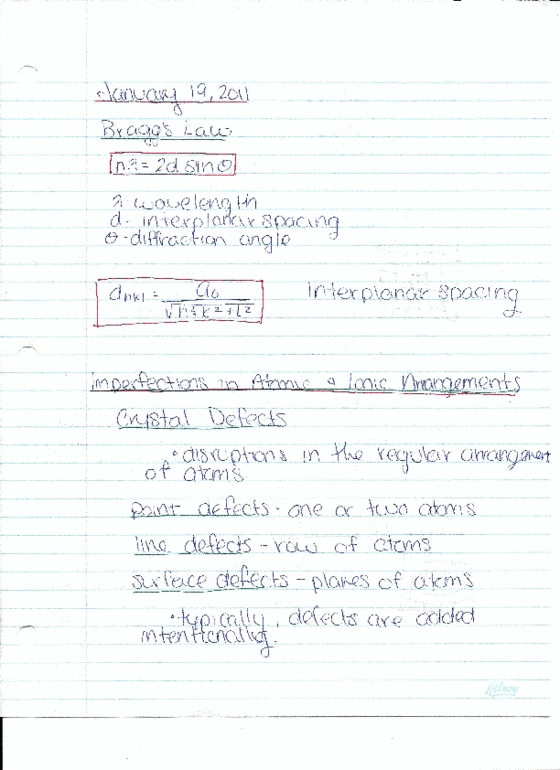 January 19, 2011
Bragg's Law
nλ = 2d sin θ
λ wavelength
d - interplanar spacing
θ - diffraction angle
d_hkl = a₀ / √h²+k²+l² interplanar spacing
imperfections in Atomic & Ionic Arrangements
Crystal Defects
• disruptions in the regular arrangement
of atoms
point defects - one or two atoms
line defects - row of atoms
surface defects - planes of atoms
• typically, defects are added
intentionally.
Hilroy